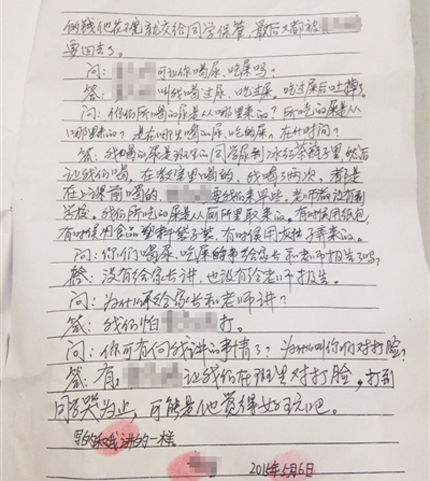 的钱他在 就交给同学保管，最后又都被
要回去了。
问： 可让你喝尿、吃屎吗？
答： 叫我喝过尿、吃过屎。吃过屎后吐掉了
问：你们所喝的尿是从哪里来的？所吃的屎是从
哪里来的？是在哪里喝的尿、吃的屎，在什时间？
答：我喝的尿是班里的同学尿到冰红茶瓶子里，然后
让我们喝，在教室里喝的，我喝了两次，都是
在上课前喝的， 要我们来早些，老师都没有到
学校。我们所吃的屎是从厕所里取来的。有时候用纸包
有时候用食品塑料袋子装，有时候用 子弄来的。
问：你们喝尿、吃屎的事给家长和老师报告了吗？
答：没有给家长讲，也没有给老师报告。
问：为什么不给家长和老师讲？
答：我们怕 打。
问：你可有何我讲的事情了？为什么叫你们对打脸？
答：有， 让我们在班里对打脸，打到
同学哭为止，可能是他觉得好玩吧。
写的和我讲的一样
2015年5月6日